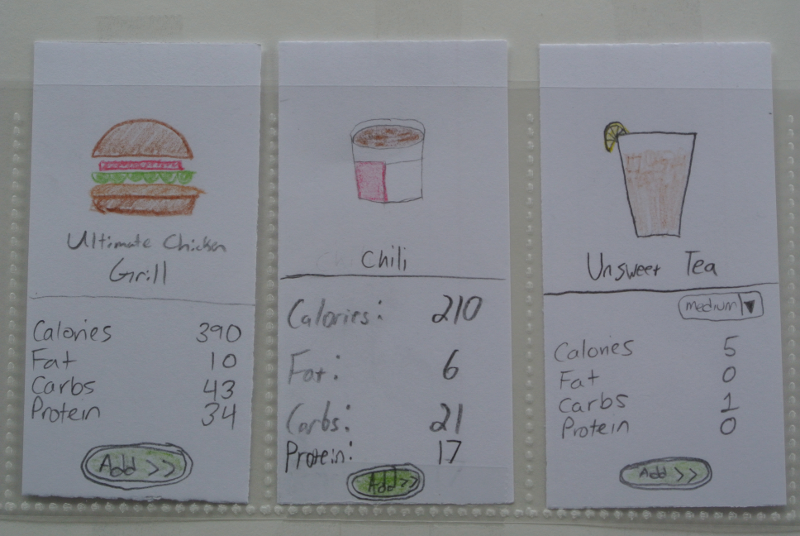 Ultimate Chicken
Grill
Calories 390
Fat 10
Carbs 43
Protein 34
Add >>
Chili
Calories: 210
Fat: 6
Carbs: 21
Protein: 17
Add >>
Unsweet Tea
medium ▼
Calories 5
Fat 0
Carbs 1
Protein 0
Add >>